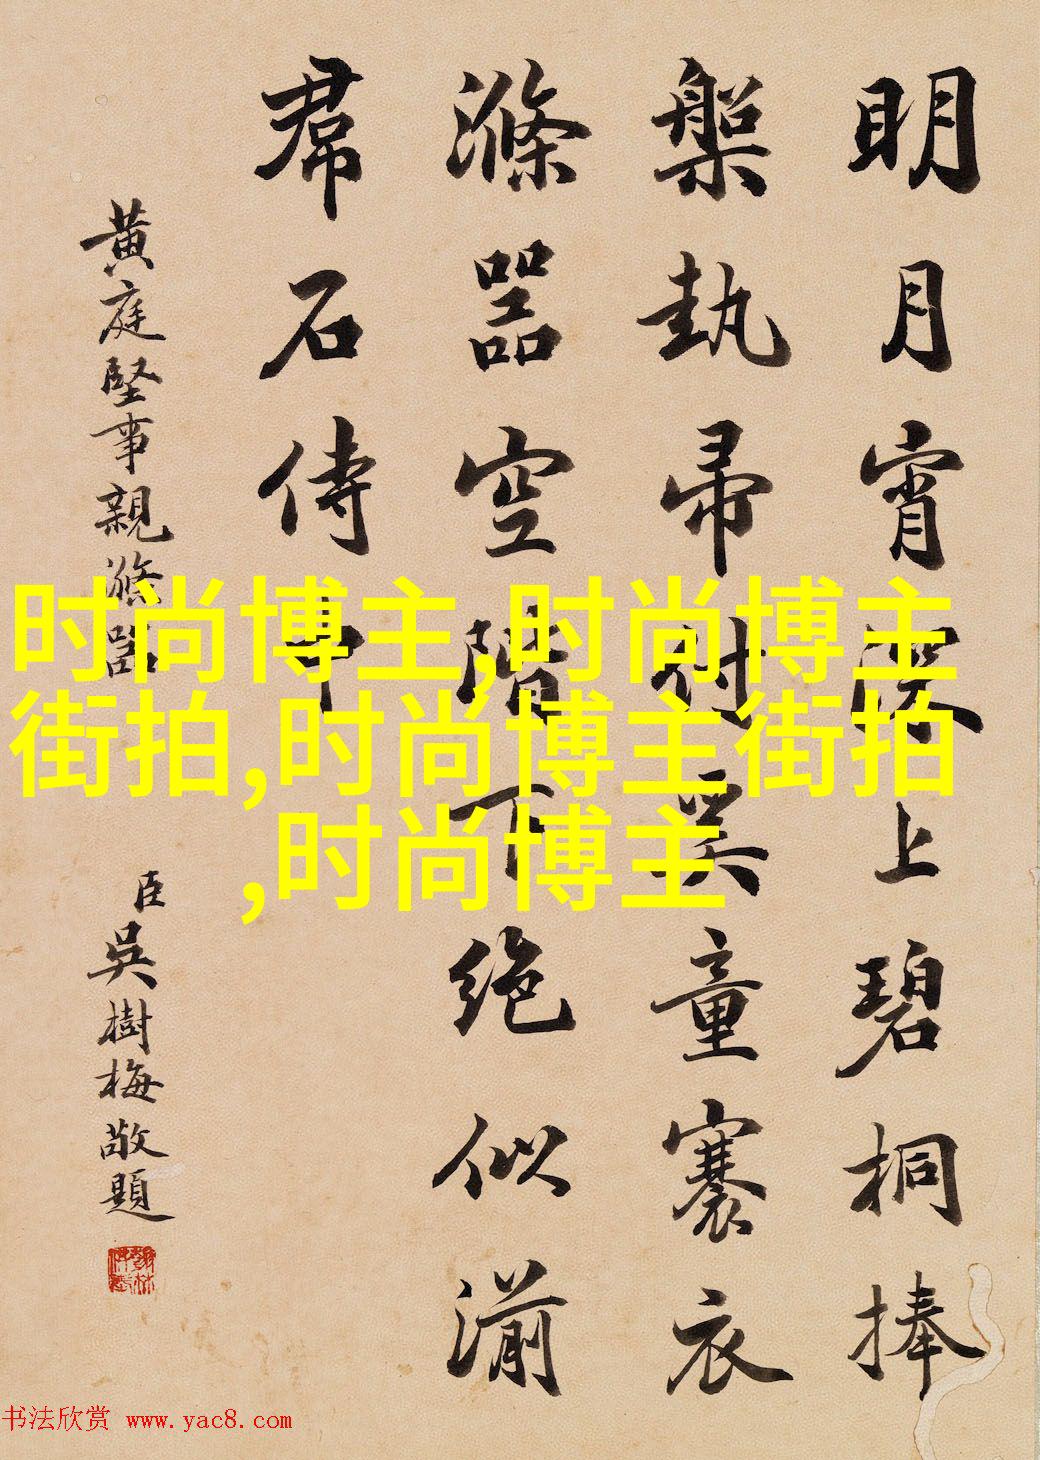 明月宵深上碧桐捧
槃執帚對奚童褰衣
滌器空階下絶似湔
帬石侍中
黄庭堅事親滌器
臣吳樹梅敬題
时尚博主,时尚博主
街拍,时尚博主街拍
,时尚博主
书法欣赏 www.yac8.com